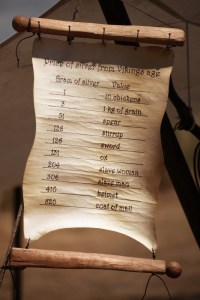 Price of silver from Vikings age
Gram of silver Value
1 10 chickens
3 1 kg of grain
51 spear
126 stirrup
126 sword
151 ox
204 slave woman
306 slave man
410 helmet
820 coat of mail